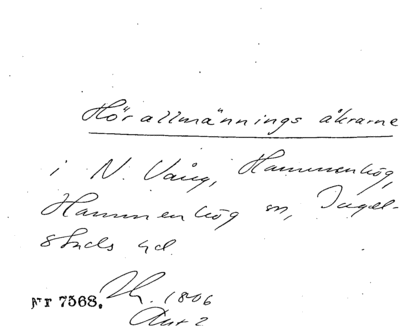 Hörallmännings åkrarne
i N. Vång, Hammenhög,
Hammenhög sn, Ingel-
stads hd.
Nr 7568. 1806
Akt 2